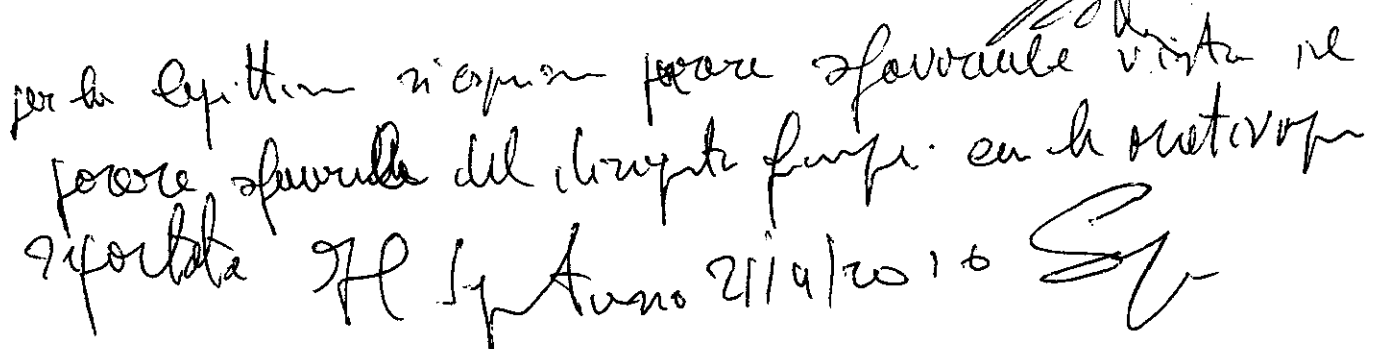 per la legittim si esprime parere sfavorevole visto il
parere sfavorevole del dirigente con la motivazione
riportata Il Segretario 21/4/2010